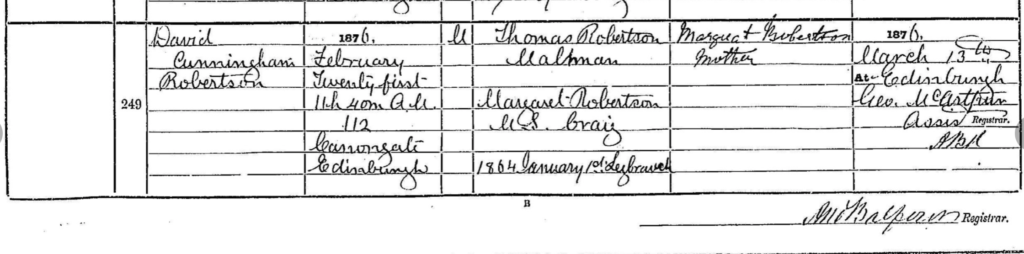 249
David
Cunningham
Robertson
1876.
February
Twenty first
11h 40m A.M.
112
Canongate
Edinburgh
M
Thomas Robertson
Maltman
Margaret Robertson
M.S. Craig
1864 January 1st
Margaret Robertson
Mother
1876.
March 13th
At Edinburgh
Geo. McArthur
Assist Registrar.
B
Registrar.